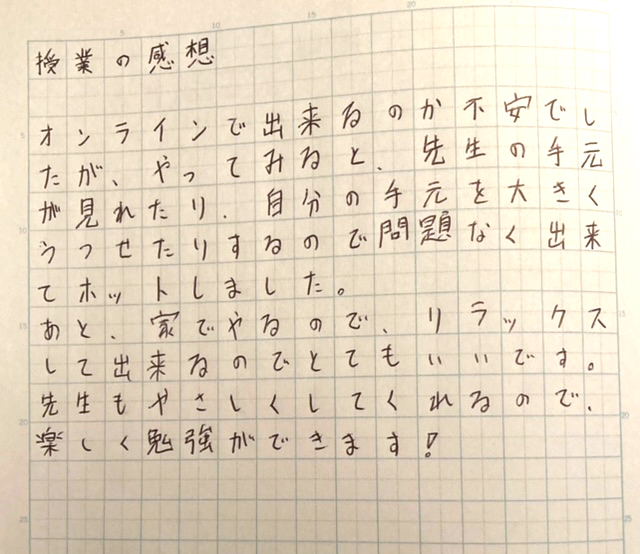 授業の感想
オンラインで出来るのか不安でし
たが、やってみると、先生の手元
が見れたり、自分の手元を大きく
うつせたりするので問題なく出来
てホットしました。
あと、家でやるので、リラックス
して出来るのでとてもいいです。
先生もやさしくしてくれるので、
楽しく勉強ができます!